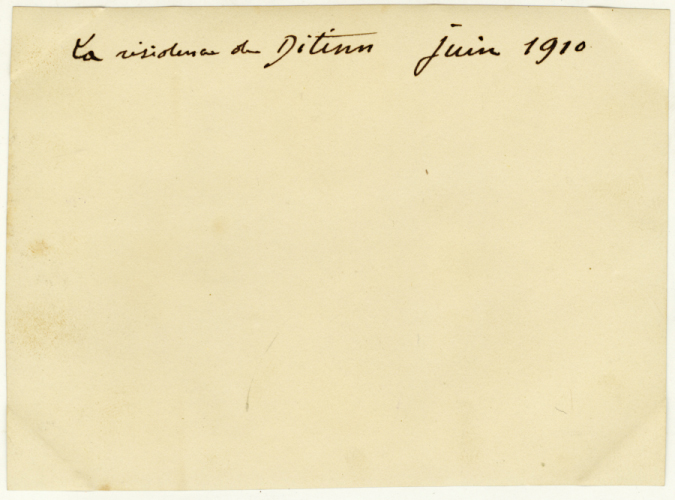 La résidence de Ditinn juin 1910